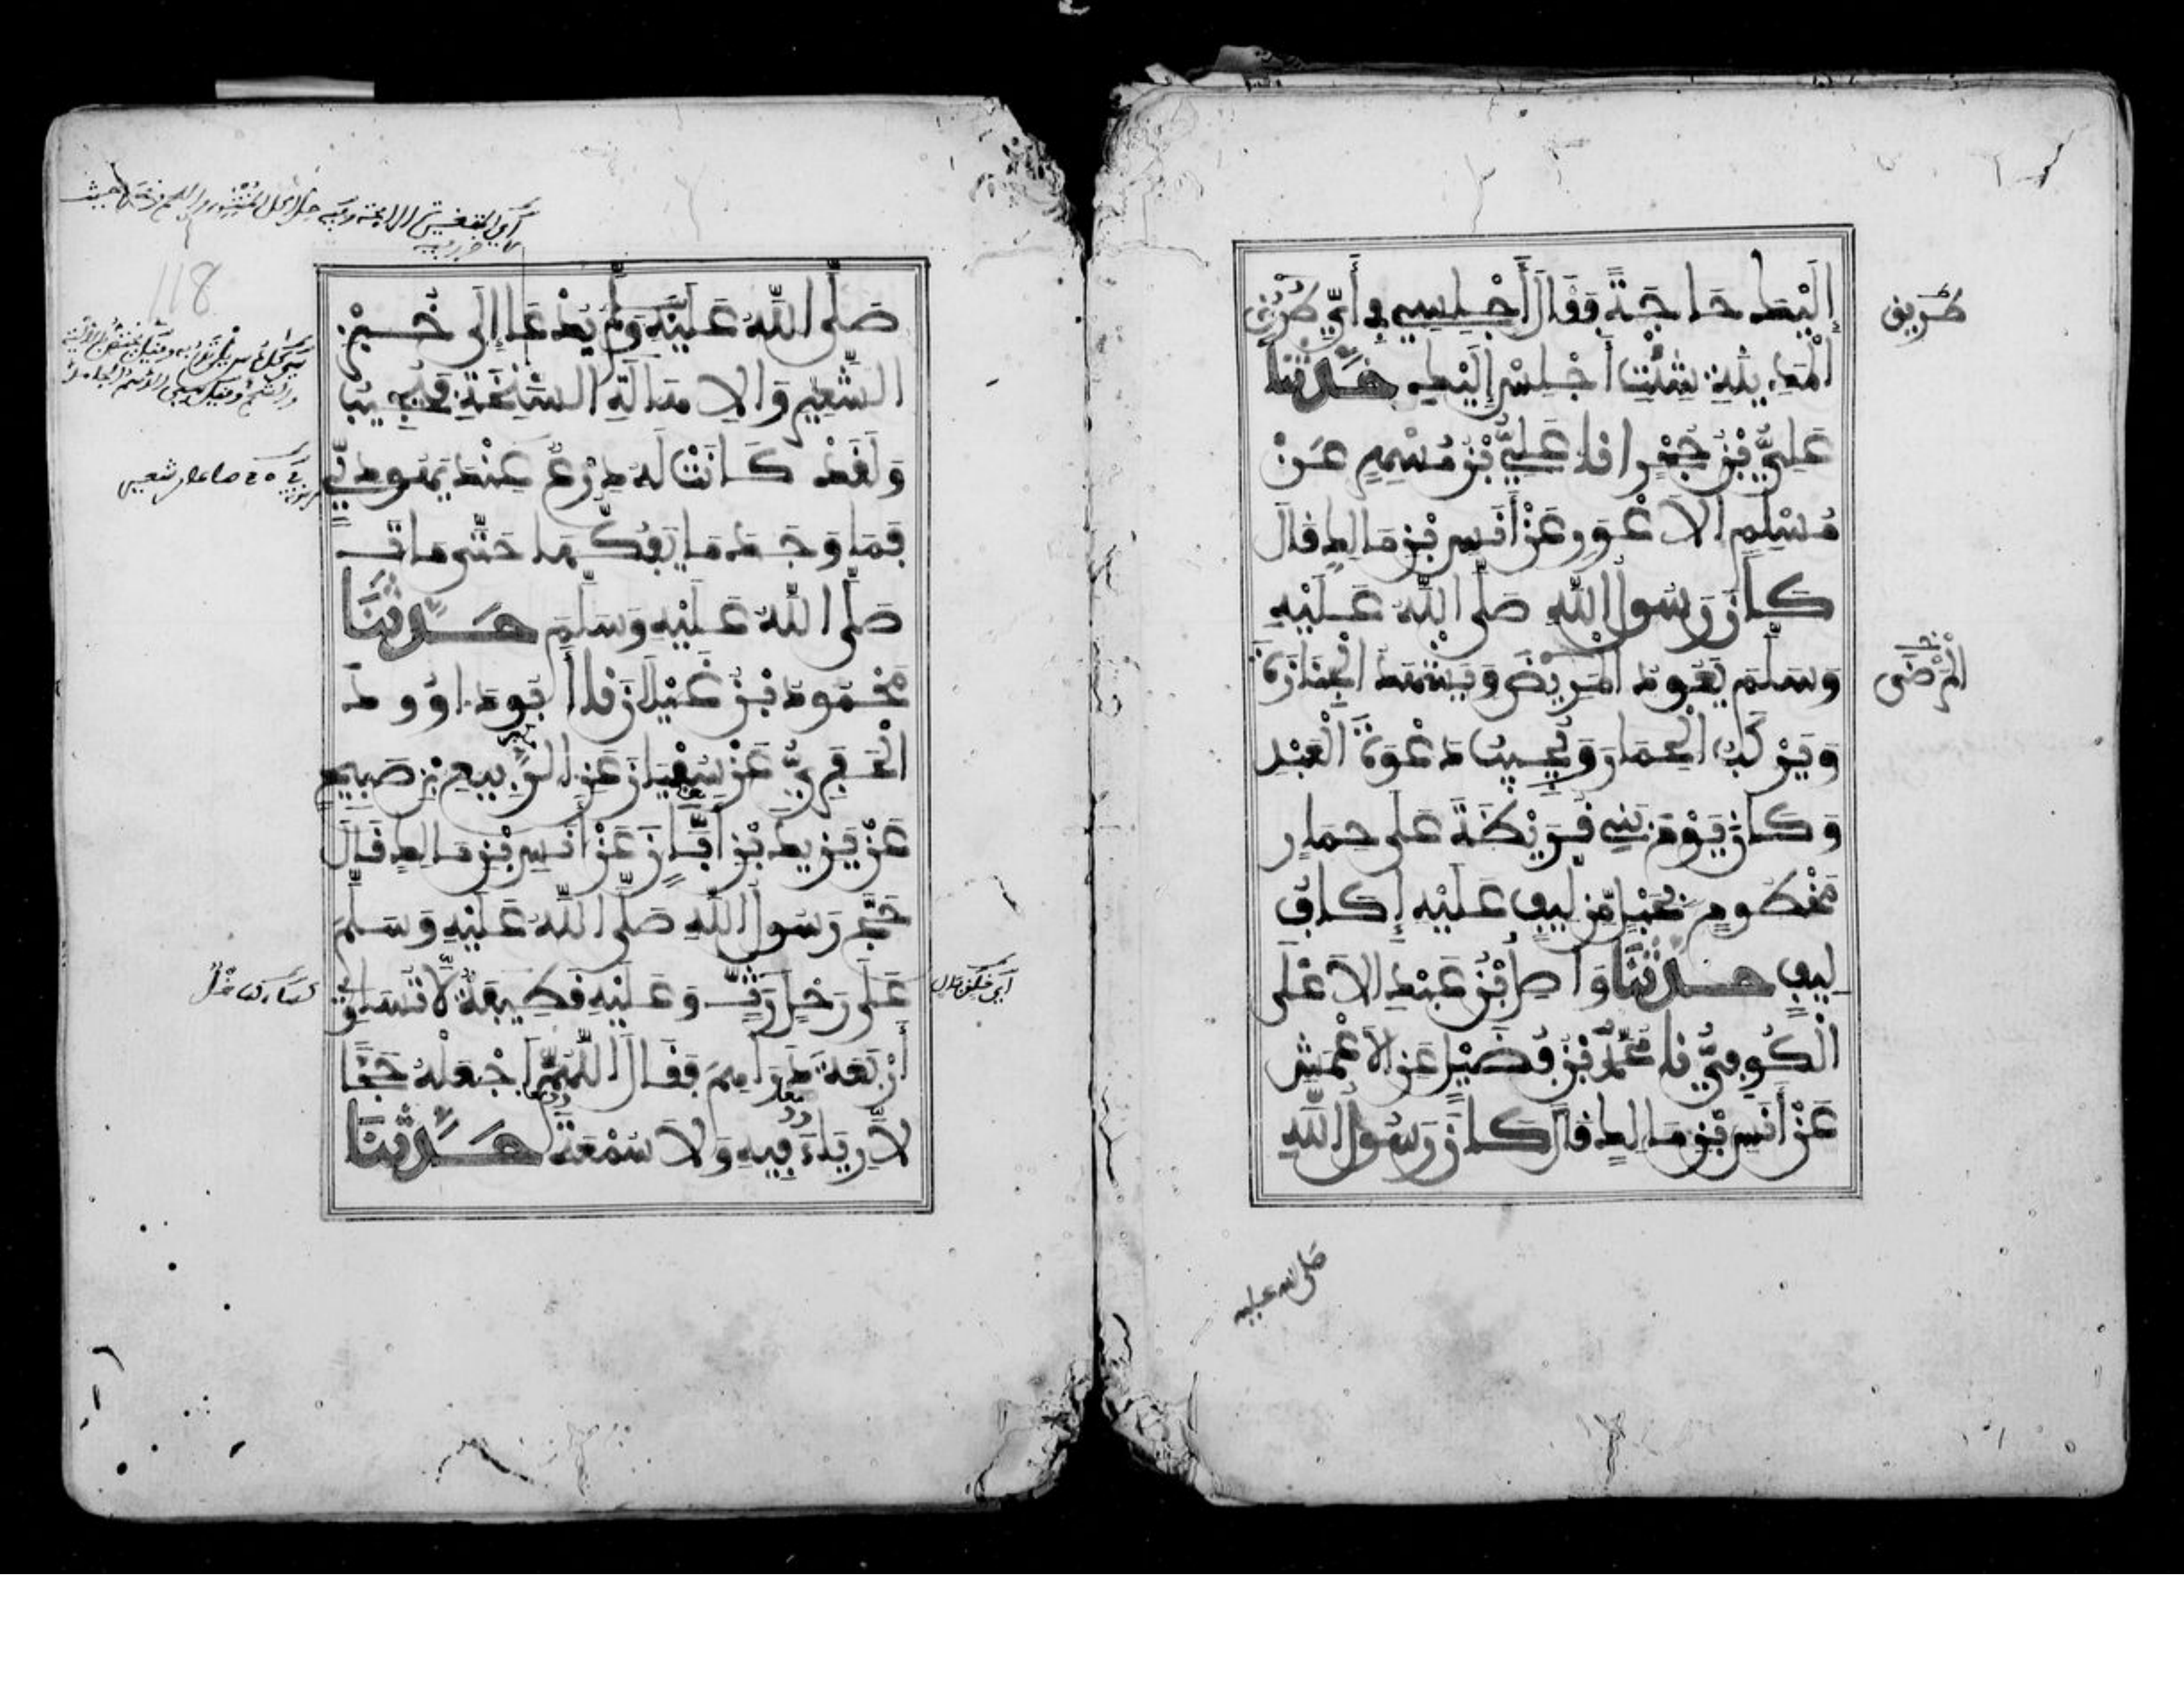 إِلَيْكَ حَاجَةً فَقَالَ أَجْلِسِي فِي أَيِّ طُرُقِ
الْمَدِينَةِ شِئْتِ أَجْلِسْ إِلَيْكِ حَدَّثَنَا
عَلِيُّ بْنُ حُجْرٍ انا عَلِيُّ بْنُ مُسْهِرٍ عَنْ
مُسْلِمٍ الاَعْوَرِ عَنْ أَنَسِ بْنِ مَالِكٍ قَالَ
كَانَ رَسُولُ اللَّهِ صَلَّى اللَّهُ عَلَيْهِ
وَسَلَّمَ يَعُودُ الْمَرِيضَ وَيَشْهَدُ الْجَنَازَةَ
وَيَرْكَبُ الْحِمَارَ وَيُجِيبُ دَعْوَةَ الْعَبْدِ
وَكَانَ يَوْمَ بَنِي قُرَيْظَةَ عَلَى حِمَارٍ
مَخْطُومٍ بِحَبْلٍ مِّن لِيفٍ عَلَيْهِ إِكَافُ
لِيفٍ حَدَّثَنَا وَاصِلُ بْنُ عَبْدِ الاَعْلَى
الْكُوفِيُّ نا مُحَمَّدُ بْنُ فُضَيْلٍ عَنِ الاَعْمَشِ
عَنْ أَنَسِ بْنِ مَالِكٍ قَالَ كَانَ رَسُولُ اللَّهِ
طريق
الْمَرْضَى
صلى الله عليه
صَلَّى اللَّهُ عَلَيْهِ وَسَلَّمَ يُدْعَا إِلَى خُبْزِ
الشَّعِيرِ وَالاِهَالَةِ السَّنِخَةِ فَيُجِيبُ
وَلَقَدْ كَانَتْ لَهُ دِرْعٌ عِنْدَ يَهُودِيٍّ
فَمَا وَجَدَ مَا يَفُكُّهَا حَتَّى مَاتَ
صَلَّى اللَّهُ عَلَيْهِ وَسَلَّمَ حَدَّثَنَا
مَحْمُودُ بْنُ غَيْلاَنَ نا أَبُو دَاوُودَ
الْحَفَرِيُّ عَنْ سُفْيَانَ عَنِ الرَّبِيعِ بْنِ صَبِيحٍ
عَنْ يَزِيدَ بْنِ أَبَانٍ عَنْ أَنَسِ بْنِ مَالِكٍ قَالَ
حَجَّ رَسُولُ اللَّهِ صَلَّى اللَّهُ عَلَيْهِ وَسَلَّمَ
عَلَى رَحْلٍ رَثٍّ وَعَلَيْهِ قَطِيفَةٌ لاَّ تُسَاوِي
أَرْبَعَةَ دَرَاهِمَ فَقَالَ اللَّهُمَّ اجْعَلْهُ حَجًّا
لاَّ رِيَاءَ فِيهِ وَلاَ سُمْعَةَ حَدَّثَنَا
118